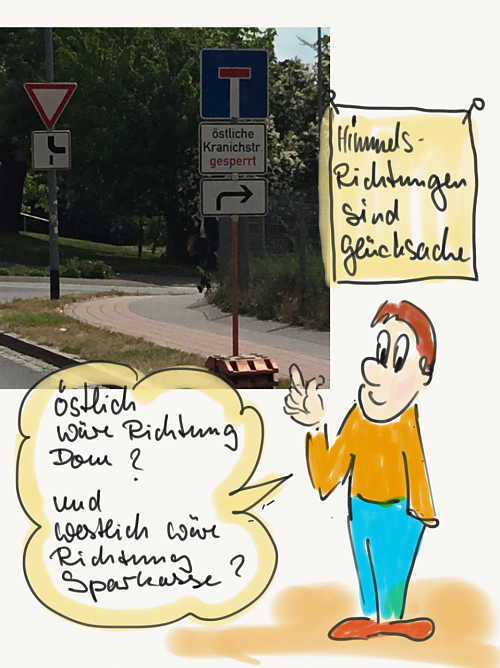 östliche
Kranichstr.
gesperrt
Himmels-
Richtungen
sind
Glücksache
östlich
wäre Richtung
Dom ?
und
westlich wäre
Richtung
Sparkasse ?